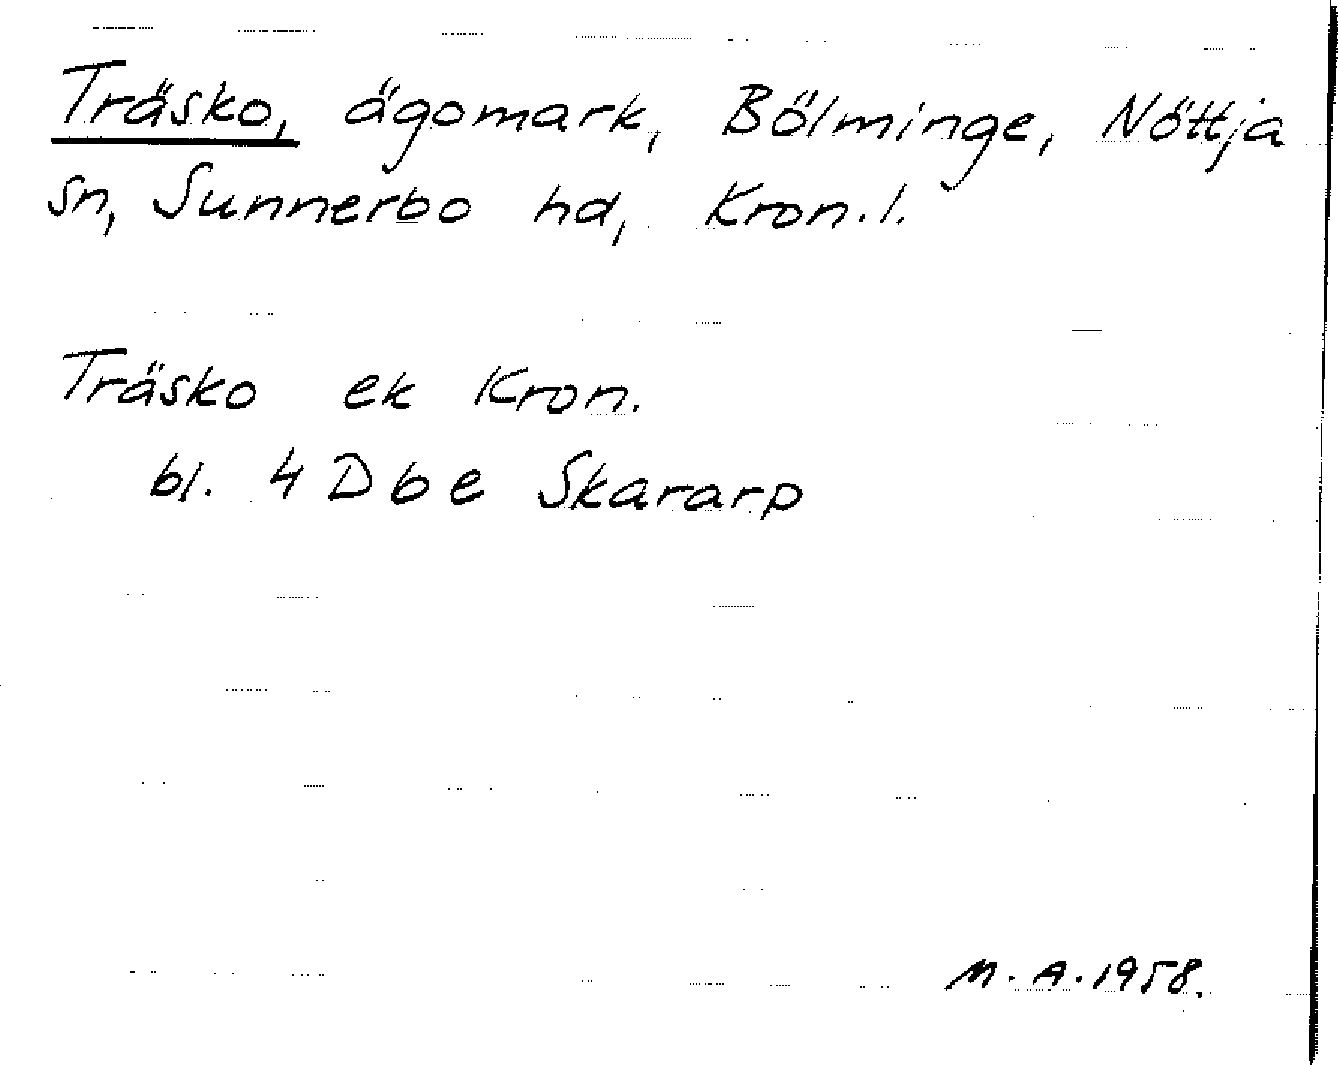 Träsko, ägomark, Bölminge, Nöttja
sn, Sunnerbo hd, Kron. l.
Träsko ek Kron.
bl. 4 D b e Skararp
M. A. 1958.